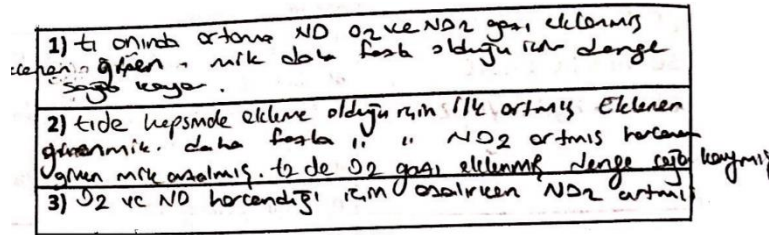 1) t1 anında ortama NO O2 ve NO2 gazı eklenmiş
giren mik daha fazla olduğu için denge
sağa kayar.
2) t1de hepsinde ekleme olduğu için ilk artmış Eklenen
giren mik. daha fazla " " NO2 artmış harcanan
giren mik azalmış. t2 de O2 gazı eklenmiş denge sağa kaymış
3) O2 ve NO harcandığı için azalırken NO2 artmış